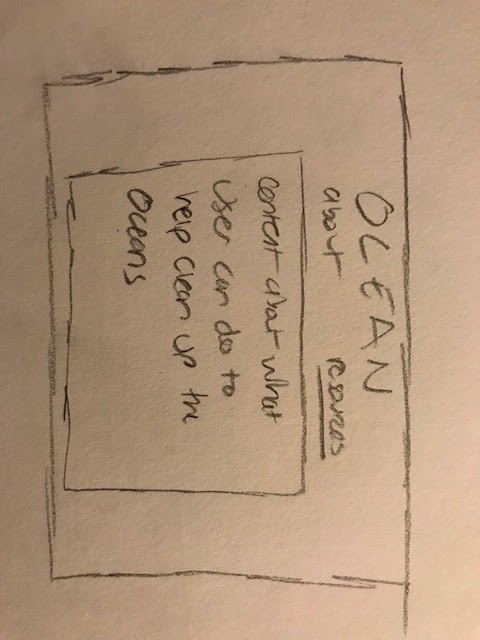 OCEAN
about resources
content about what
user can do to
help clean up the
oceans